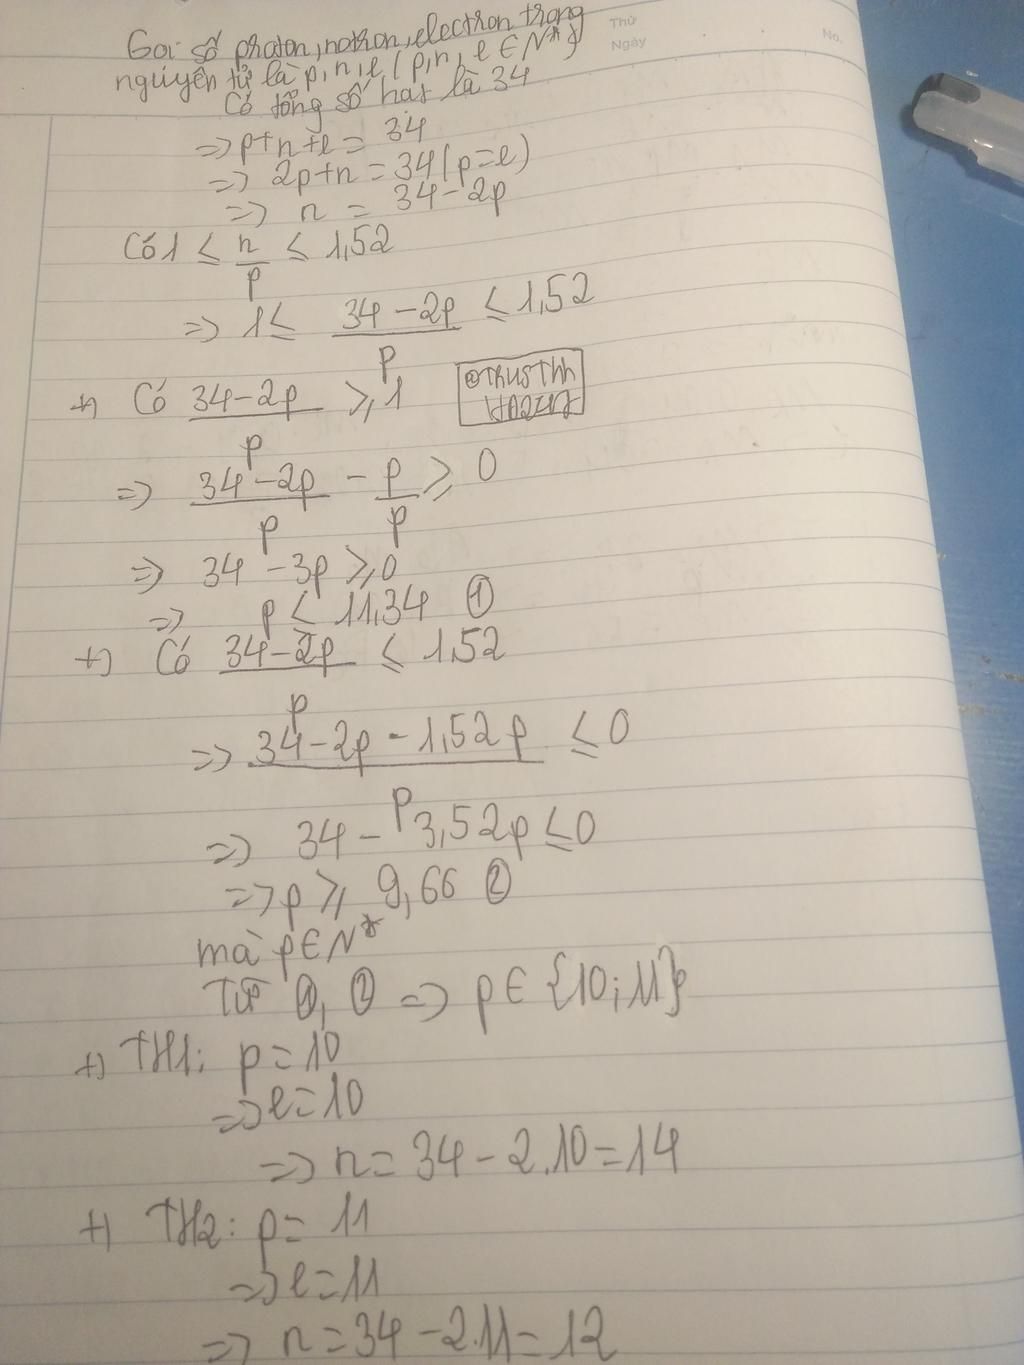 Thứ
Ngày
No.
Gọi số proton, notron, electron trong
nguyên tử là p, n, e (p, n, e ∈ N*)
Có tổng số hạt là 34
=> p+n+e = 34
=> 2p+n = 34 (p=e)
=> n = 34-2p
Có 1 ≤ n/p ≤ 1,52
=> 1 ≤ (34-2p)/p ≤ 1,52
+) Có (34-2p)/p ≥ 1
=> (34-2p)/p - p/p ≥ 0
=> 34-3p ≥ 0
=> p ≤ 11,34 ①
+) Có (34-2p)/p ≤ 1,52
=> (34-2p-1,52p)/p ≤ 0
=> 34-3,52p ≤ 0
=> p ≥ 9,66 ②
mà p∈N*
Từ ①, ② => p∈{10;11}
+) TH1: p=10
=> e=10
=> n=34-2.10=14
+) TH2: p=11
=> e=11
=> n=34-2.11=12